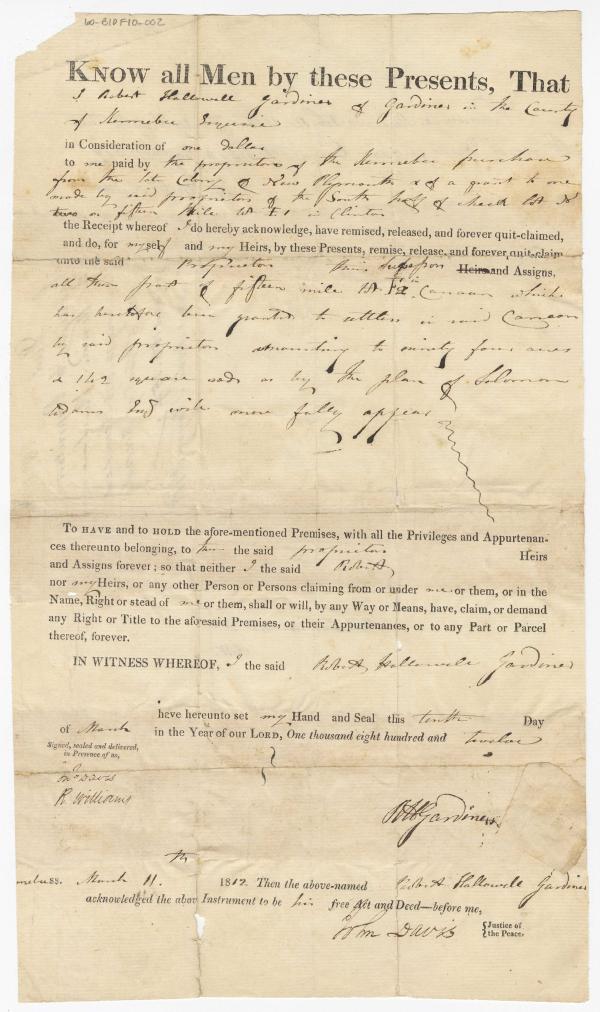 60-B1DF10-002
KNOW all Men by these Presents, That
I Robert Hallowell Gardiner of Gardiner in the County
of Kennebec Esquire
in Consideration of one dollar
to me paid by the proprietors of the Kennebec purchase
from the late Colony of New Plymouth & of a grant to me
made by said proprietors of the South half of check lot No
two on fifteen Mile lot E1 in Clinton
the Receipt whereof I do hereby acknowledge, have remised, released, and forever quit-claimed,
and do, for myself and my Heirs, by these Presents, remise, release, and forever quit-claim
unto the said Proprietors their Heirs and Assigns,
all that part of fifteen mile lot in Canaan which
has heretofore been granted to settlers in said Canaan
by said proprietors amounting to ninety four acres
& 142 square rods as by the plan of Solomon
Adams will more fully appear
To HAVE and to HOLD the afore-mentioned Premises, with all the Privileges and Appurtenan-
ces thereunto belonging, to the said proprietors Heirs
and Assigns forever; so that neither I the said Robert
nor my Heirs, or any other Person or Persons claiming from or under me or them, or in the
Name, Right or stead of me or them, shall or will, by any Way or Means, have, claim, or demand
any Right or Title to the aforesaid Premises, or their Appurtenances, or to any Part or Parcel
thereof, forever.
IN WITNESS WHEREOF, I the said Robert Hallowell Gardiner
have hereunto set my Hand and Seal this tenth Day
of March in the Year of our LORD, One thousand eight hundred and twelve
Signed, sealed and delivered,
in Presence of us,
Wm Davis
R. Williams
RHGardiner
ss. March 11th 1812. Then the above-named Robert Hallowell Gardiner
acknowledged the above Instrument to be his free Act and Deed—before me,
Wm Davis Justice of
the Peace.